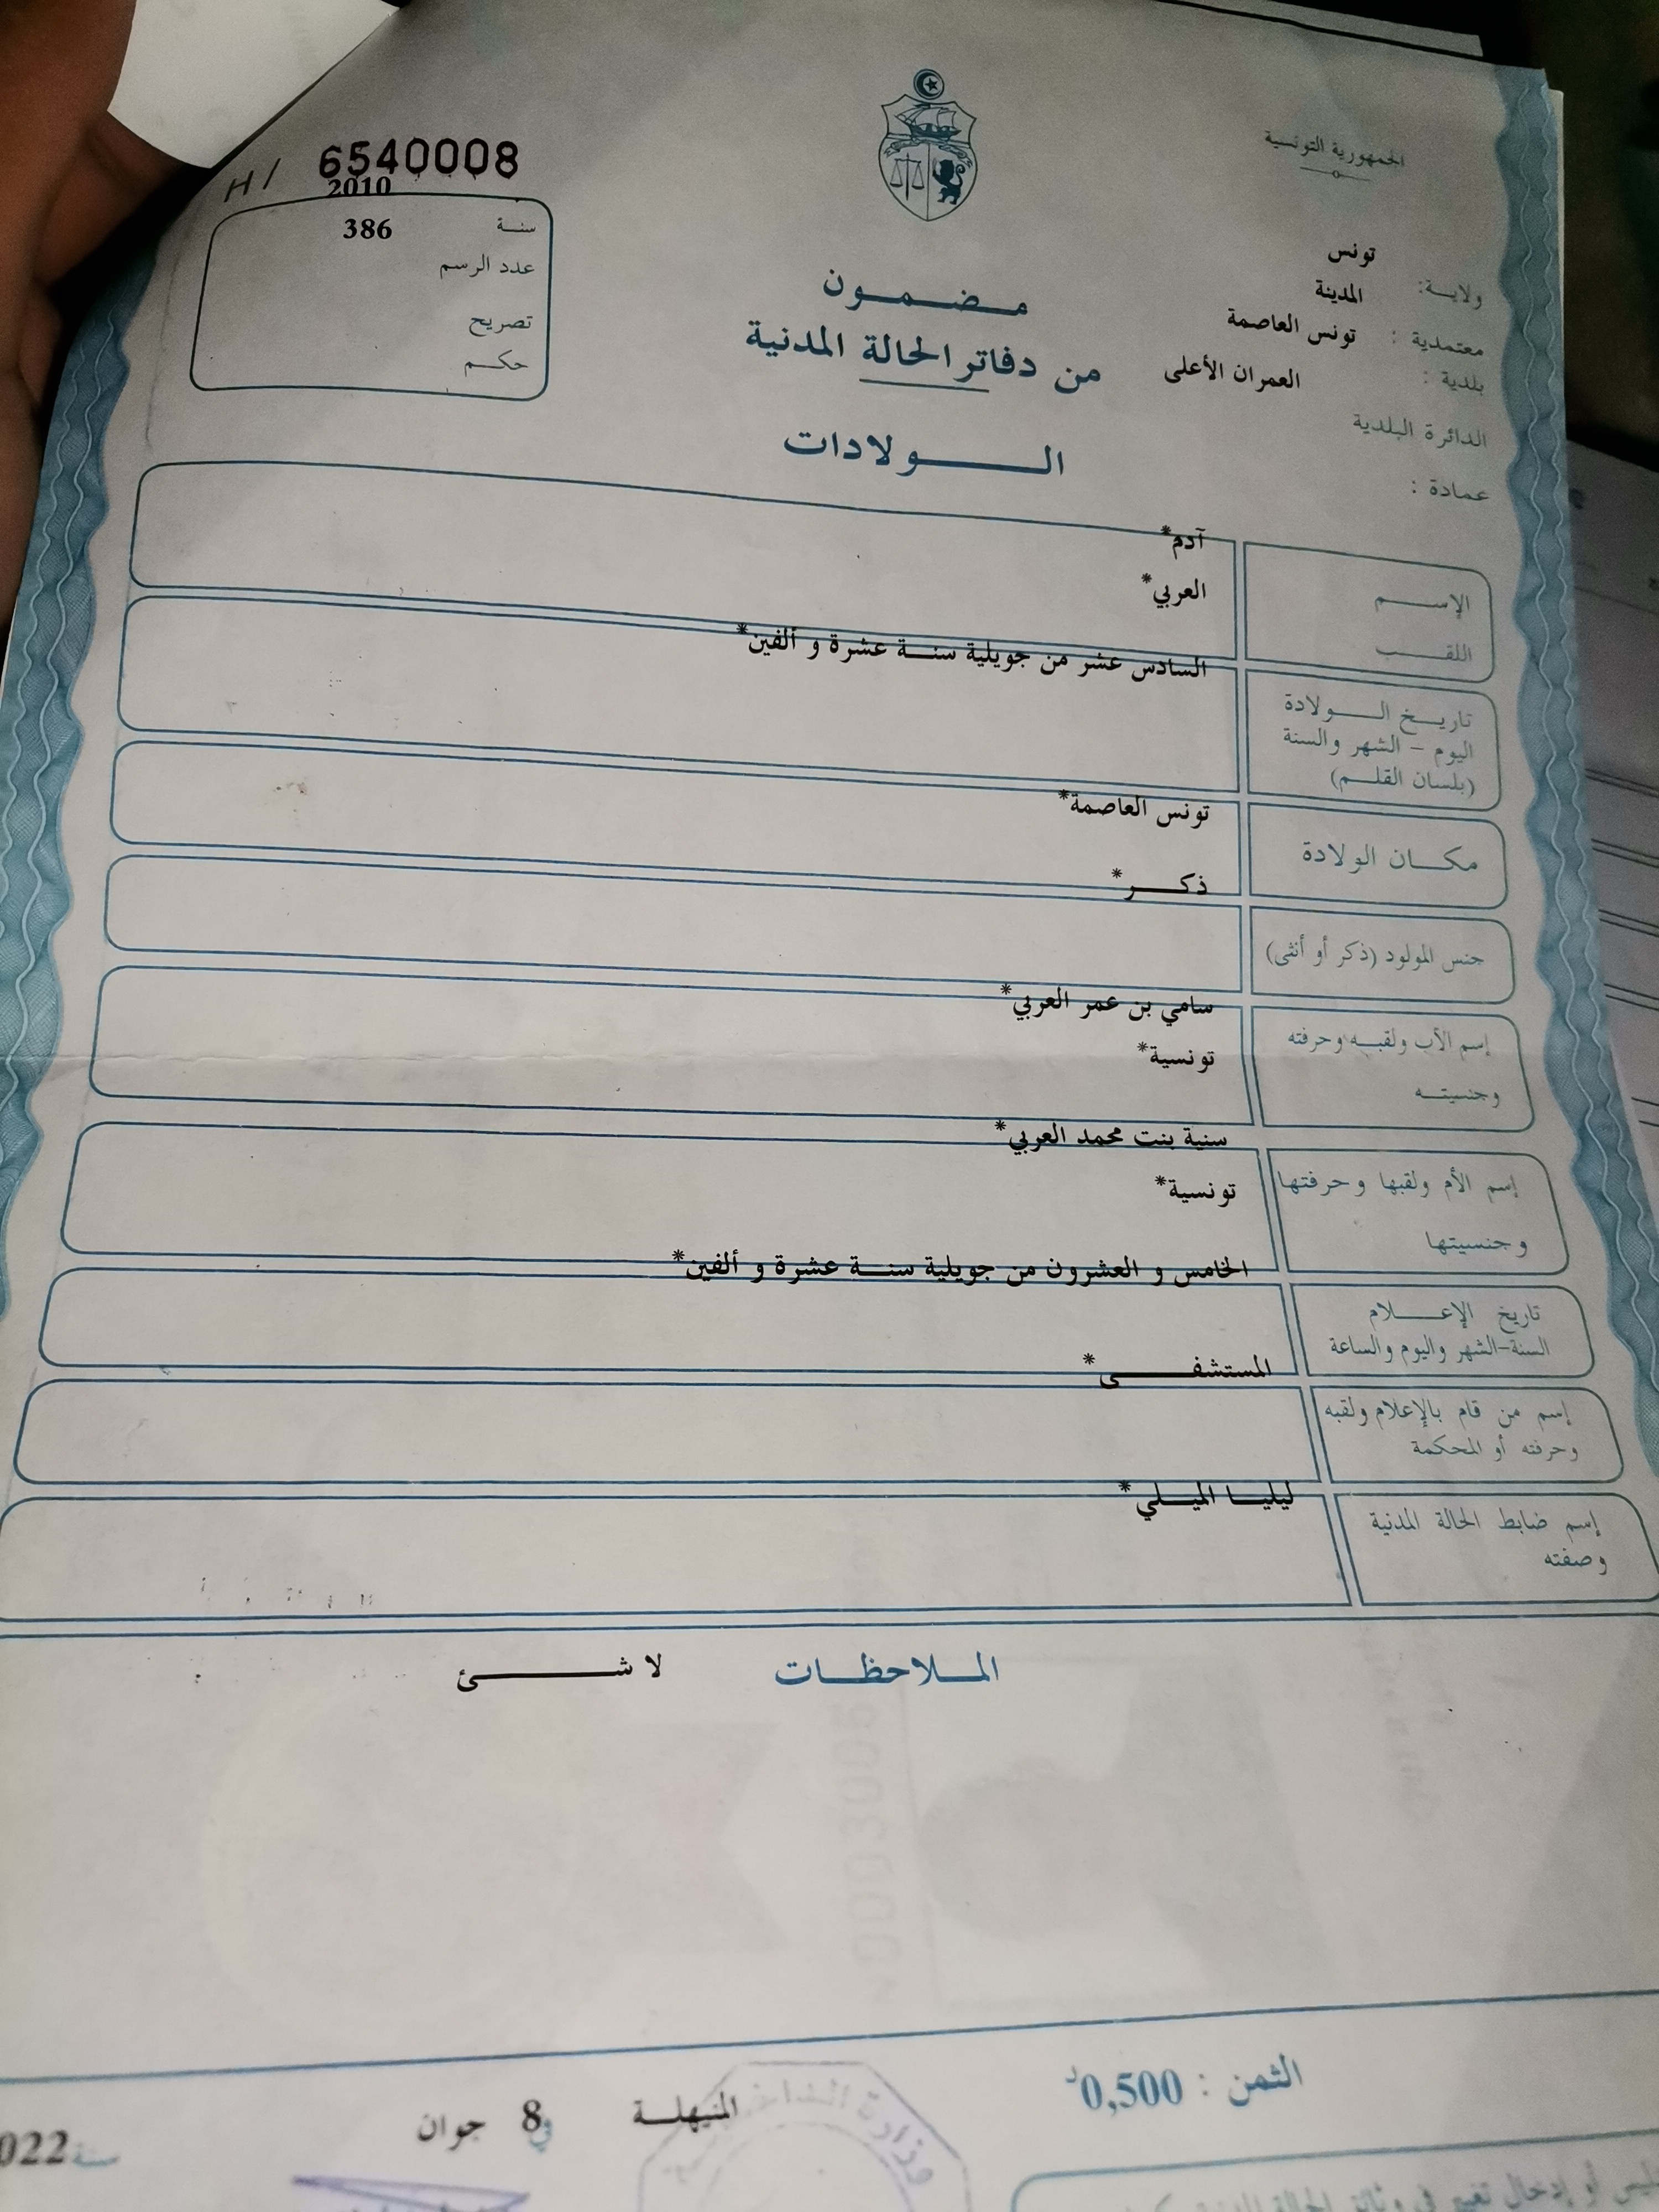 الجمهورية التونسية
H1 6540008
2010
سنة 386
عدد الرسم
تصريح
حكم
تونس
ولاية:
المدينة
معتمدية :
تونس العاصمة
بلدية :
العمران الأعلى
الدائرة البلدية
عمادة :
مضمون
من دفاتر الحالة المدنية
الولادات
آدم*
الإسم
العربي*
اللقب
السادس عشر من جويلية سنة عشرة و ألفين*
تاريخ الولادة
اليوم - الشهر والسنة
(بلسان القلم)
تونس العاصمة*
مكان الولادة
ذكر*
جنس المولود (ذكر أو أنثى)
سامي بن عمر العربي*
إسم الأب ولقبه وحرفته
تونسية*
وجنسيته
سنية بنت محمد العربي*
إسم الأم ولقبها وحرفتها
تونسية*
وجنسيتها
الخامس و العشرون من جويلية سنة عشرة و ألفين*
تاريخ الإعلام
السنة-الشهر واليوم والساعة
المستشفى*
إسم من قام بالإعلام ولقبه
وحرفته أو المحكمة
ليليا الميلي*
إسم ضابط الحالة المدنية
وصفته
الملاحظات لا شئ
الثمن : 0,500د
المنيهلة في 8 جوان سنة 022
وزارة الداخ
أو إدخال تغيير في وثائق الحالة المدنية